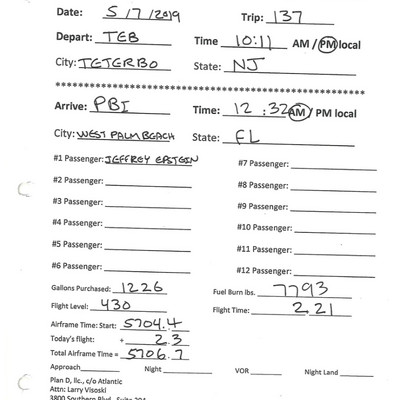 Date: 5/7/2019 Trip: 137
Depart: TEB Time 10:11 AM / PM local
City: TETERBO State: NJ
************************************************************
Arrive: PBI Time: 12:32 AM / PM local
City: WEST PALM BEACH State: FL
#1 Passenger: JEFFREY EPSTEIN #7 Passenger:
#2 Passenger: #8 Passenger:
#3 Passenger: #9 Passenger:
#4 Passenger: #10 Passenger:
#5 Passenger: #11 Passenger:
#6 Passenger: #12 Passenger:
Gallons Purchased: 1226 Fuel Burn lbs. 7793
Flight Level: 430 Flight Time: 2.21
Airframe Time: Start: 5704.4
Today's flight: + 2.3
Total Airframe Time = 5706.7
Approach Night VOR Night Land
Plan D, llc., c/o Atlantic
Attn: Larry Visoski
3800 Southern Blvd., Suite 204